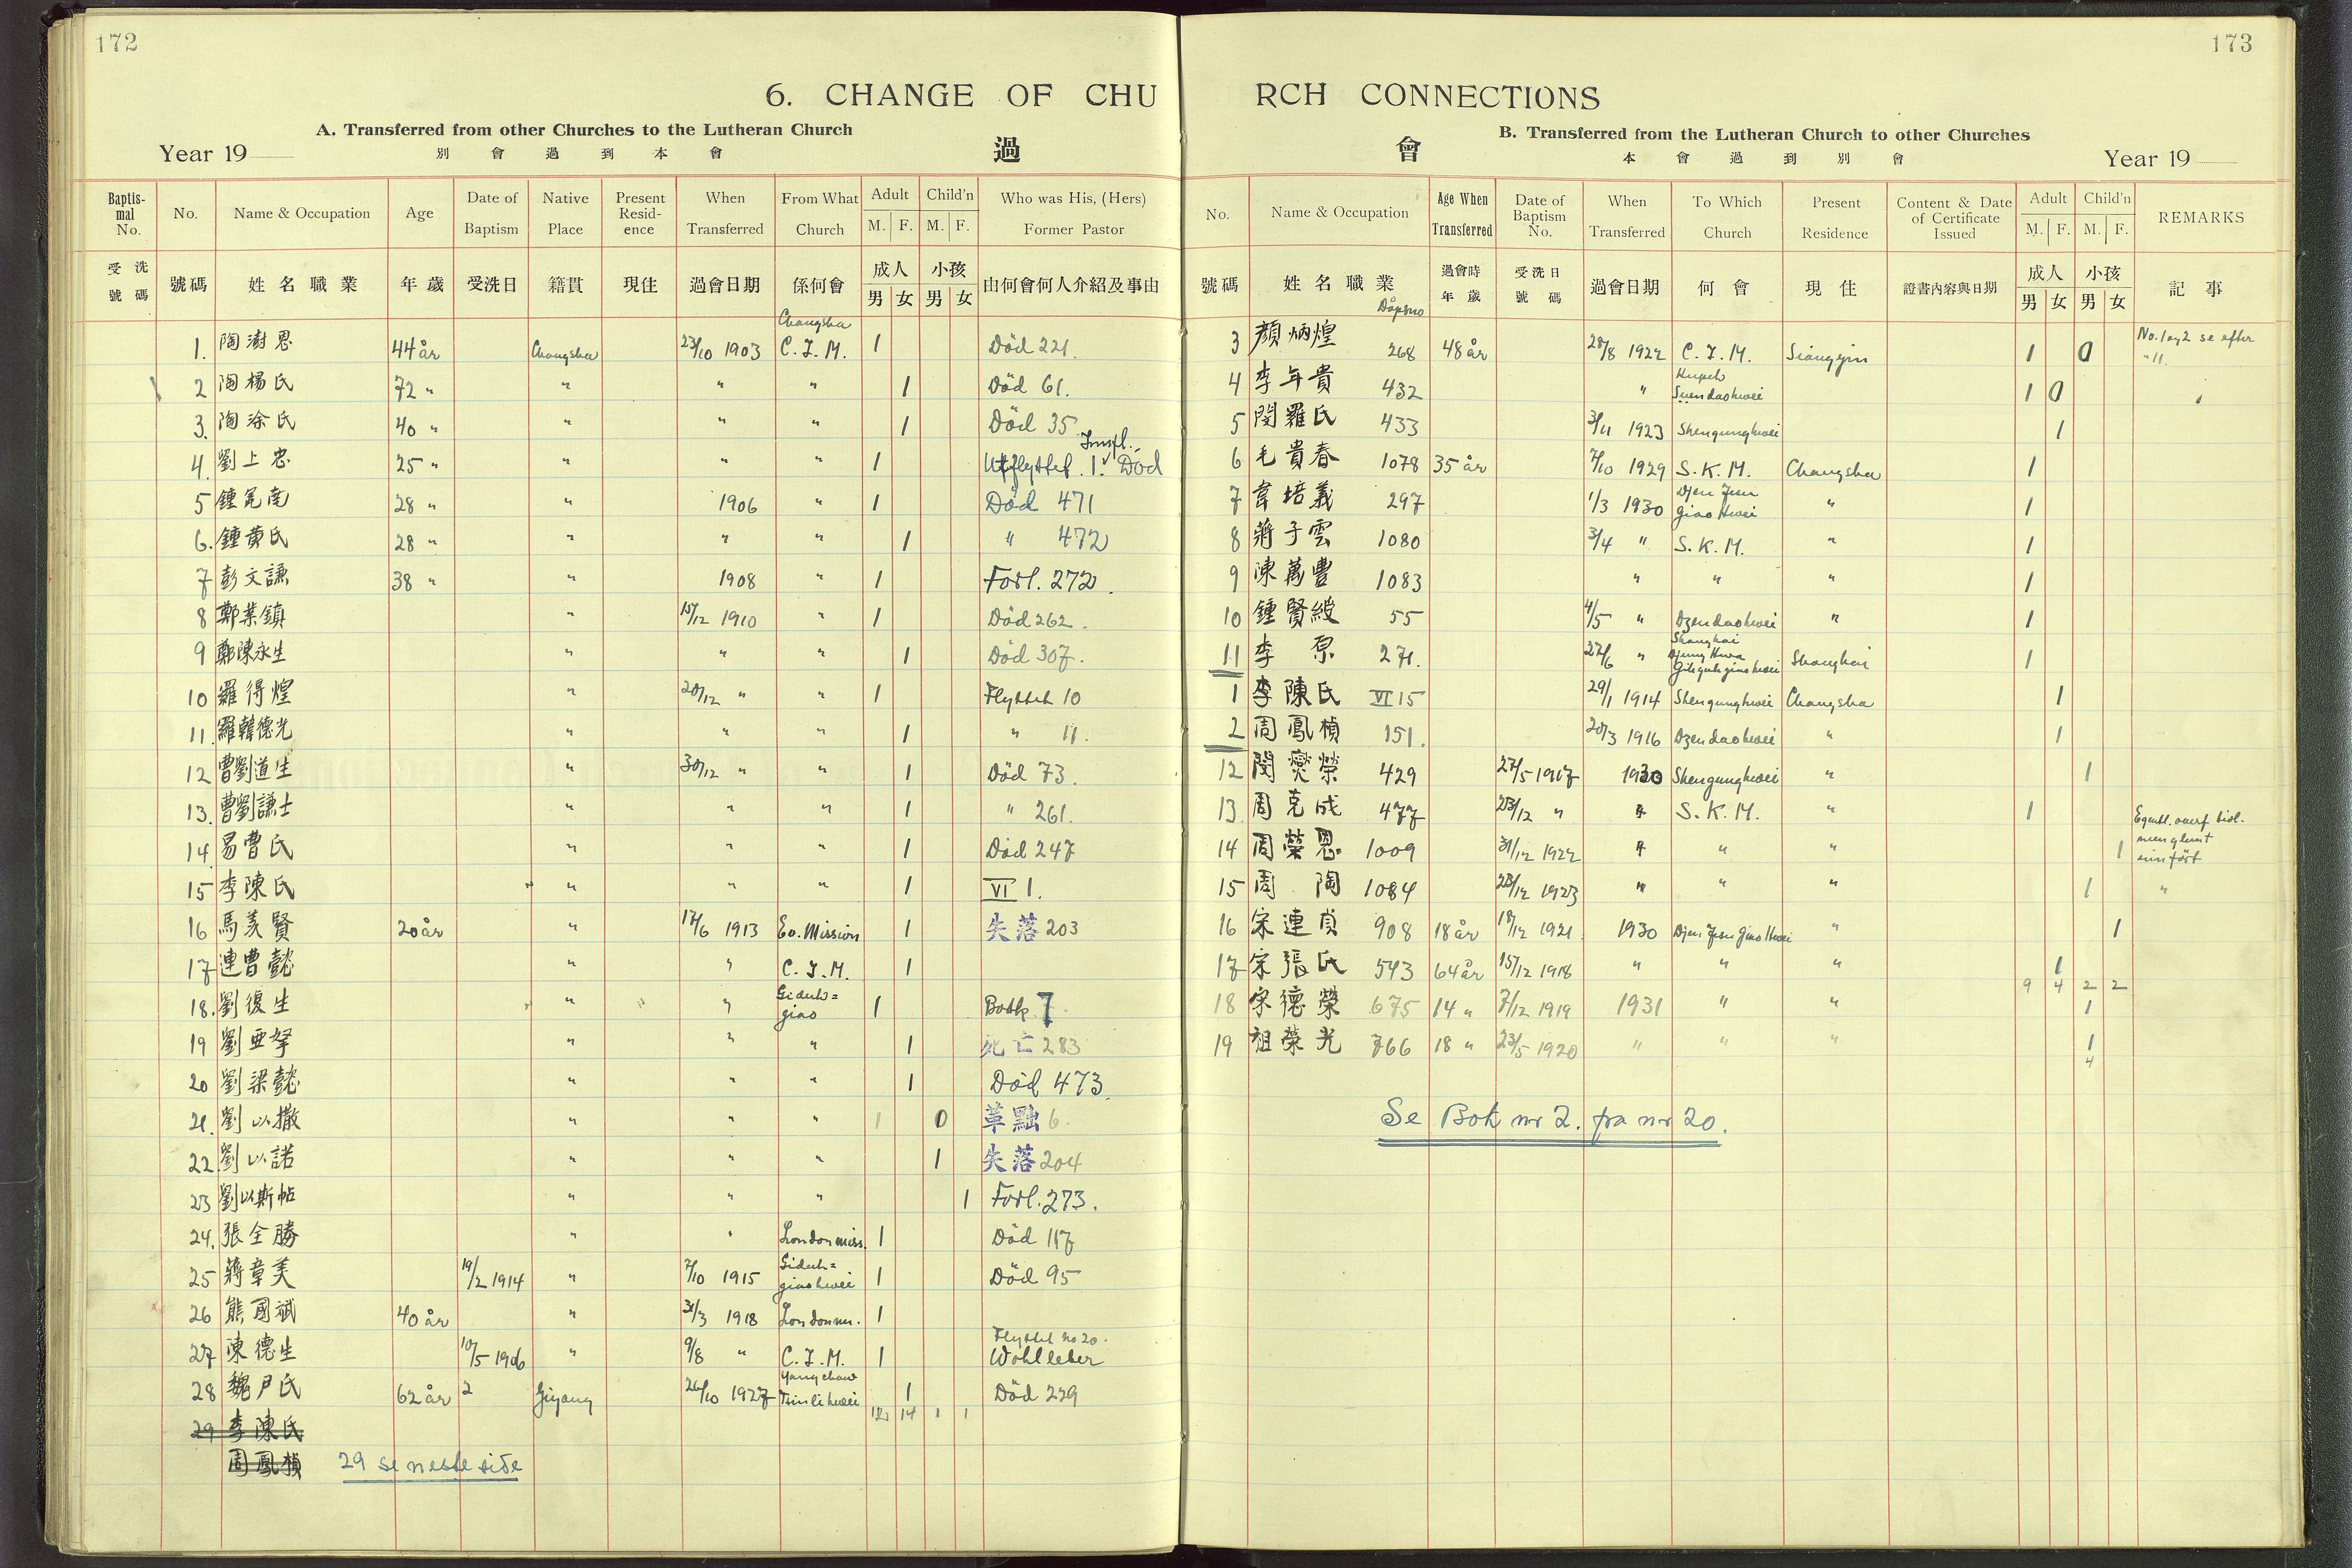 172
6. CHANGE OF CHU
A. Transferred from other Churches to the Lutheran Church
Year 19
別會過到本會
過
Baptismal No. No. Name & Occupation Age Date of Baptism Native Place Present Residence When Transferred From What Church Adult M. F. Child'n M. F. Who was His, (Hers) Former Pastor
受洗號碼 號碼 姓名職業 年歲 受洗日 籍貫 現住 過會日期 係何會 成人 男 女 小孩 男 女 由何會何人介紹及事由
1. 陶澍恩 44 år Changsha 23/10 1903 Changsha C. I. M. 1 Död 221.
2 陶楊氏 72 " " " " 1 Död 61.
3. 陶涂氏 40 " " " " 1 Död 35
4. 劉上忠 25 " " " " 1 Utflyttet 1. Död
5 鍾 南 28 " " 1906 " 1 Död 471
6. 鍾黄氏 28 " " " " 1 " 472
7 彭文謙 38 " " 1908 " 1 Forl. 272.
8 鄭業鎮 " 15/12 1910 " 1 Död 262.
9 鄭陳永生 " " " 1 Död 307.
10 羅得煌 " 20/12 " " 1 Flyttet 10
11. 羅韓德光 " " " 1 " 11.
12 曹劉道生 " 30/12 " " 1 Död 73.
13. 曹劉謙士 " " " 1 " 261.
14. 易曹氏 " " " 1 Död 247
15 李陳氏 " " " 1 VI 1.
16 馬美賢 20 år " 17/6 1913 Ev. Mission 1 失落 203
17 連曹懿 " " C. I. M. 1
18. 劉復生 " " " Giduh= giao 1 Bortk. 7.
19 劉亜拏 " " " 1 死亡 283
20 劉梁懿 " " " 1 Död 473.
21. 劉以撒 " " " 1 0 革黜 6.
22. 劉以諾 " " " 1 失落 204
23 劉以斯帖 " " " 1 Forl. 273.
24. 張全勝 " " London miss. 1 Död 117
25 蔣章美 19/2 1914 " 7/10 1915 Giduh= giaohwei 1 Död 95
26 熊國斌 40 år " 31/3 1918 London m. 1
27 陳德生 10/5 1906 " 9/8 " C. I. M. 1 Flyttet no 20. Wohlleber
28 魏尹氏 62 år 2 Giyang 26/10 1927 Yangchow Tsinlihwei 1 Död 229
29 李陳氏 12 14 1 1
周鳳楨 29 se neste side
173
RCH CONNECTIONS
B. Transferred from the Lutheran Church to other Churches
會
本會過到別會
Year 19
No. Name & Occupation Age When Transferred Date of Baptism No. When Transferred To Which Church Present Residence Content & Date of Certificate Issued Adult M. F. Child'n M. F. REMARKS
號碼 姓名職業 過會時年歲 受洗日號碼 過會日期 何會 現住 證書內容與日期 成人 男 女 小孩 男 女 記事
Dåpsno
3 顏炳煌 268 48 år 28/8 1922 C. I. M. Siangyin 1 0 No. 1 og 2 se efter " 11.
4 李年貴 432 " Hupeh Suendaohwei 1 0
5 閔羅氏 433 3/11 1923 Shengunghwei 1
6 毛貴春 1078 35 år 7/10 1929 S. K. M. Changsha 1
7 韋培義 297 1/3 1930 Djen Jesu Giao Hwei " 1
8 蔣子雲 1080 3/4 " S. K. M. " 1
9 陳萬豐 1083 " " " 1
10 鍾賢綬 55 4/5 " Dzendaohwei " 1
11 李 原 271. 27/6 " Shanghai Djung Hwa Gihduhgiaohwei Shanghai 1
1 李陳氏 VI 15 29/1 1914 Shengunghwei Changsha 1
2 周鳳楨 151. 20/3 1916 Dzendaohwei " 1
12 閔爕榮 429 27/5 1917 1930 Shengunghwei " 1
13. 周克成 477 23/12 " " S. K. M. " 1
14 周榮恩 1009 31/12 1922 " " " 1
15 周 陶 1084 23/12 1923 " " " 1 "
16 宋連貞 908 18 år 18/12 1921. 1930 Djen Jesu Giao Hwei " 1
17 宋張氏 543 64 år 15/12 1918 " " " 1
9 4 2 2
18 宋德榮 675 14 " 7/12 1919 1931 " " 1
19 祖榮光 766 18 " 23/5 1920 " " " 1
4
Se Bok nr 2. fra nr 20.